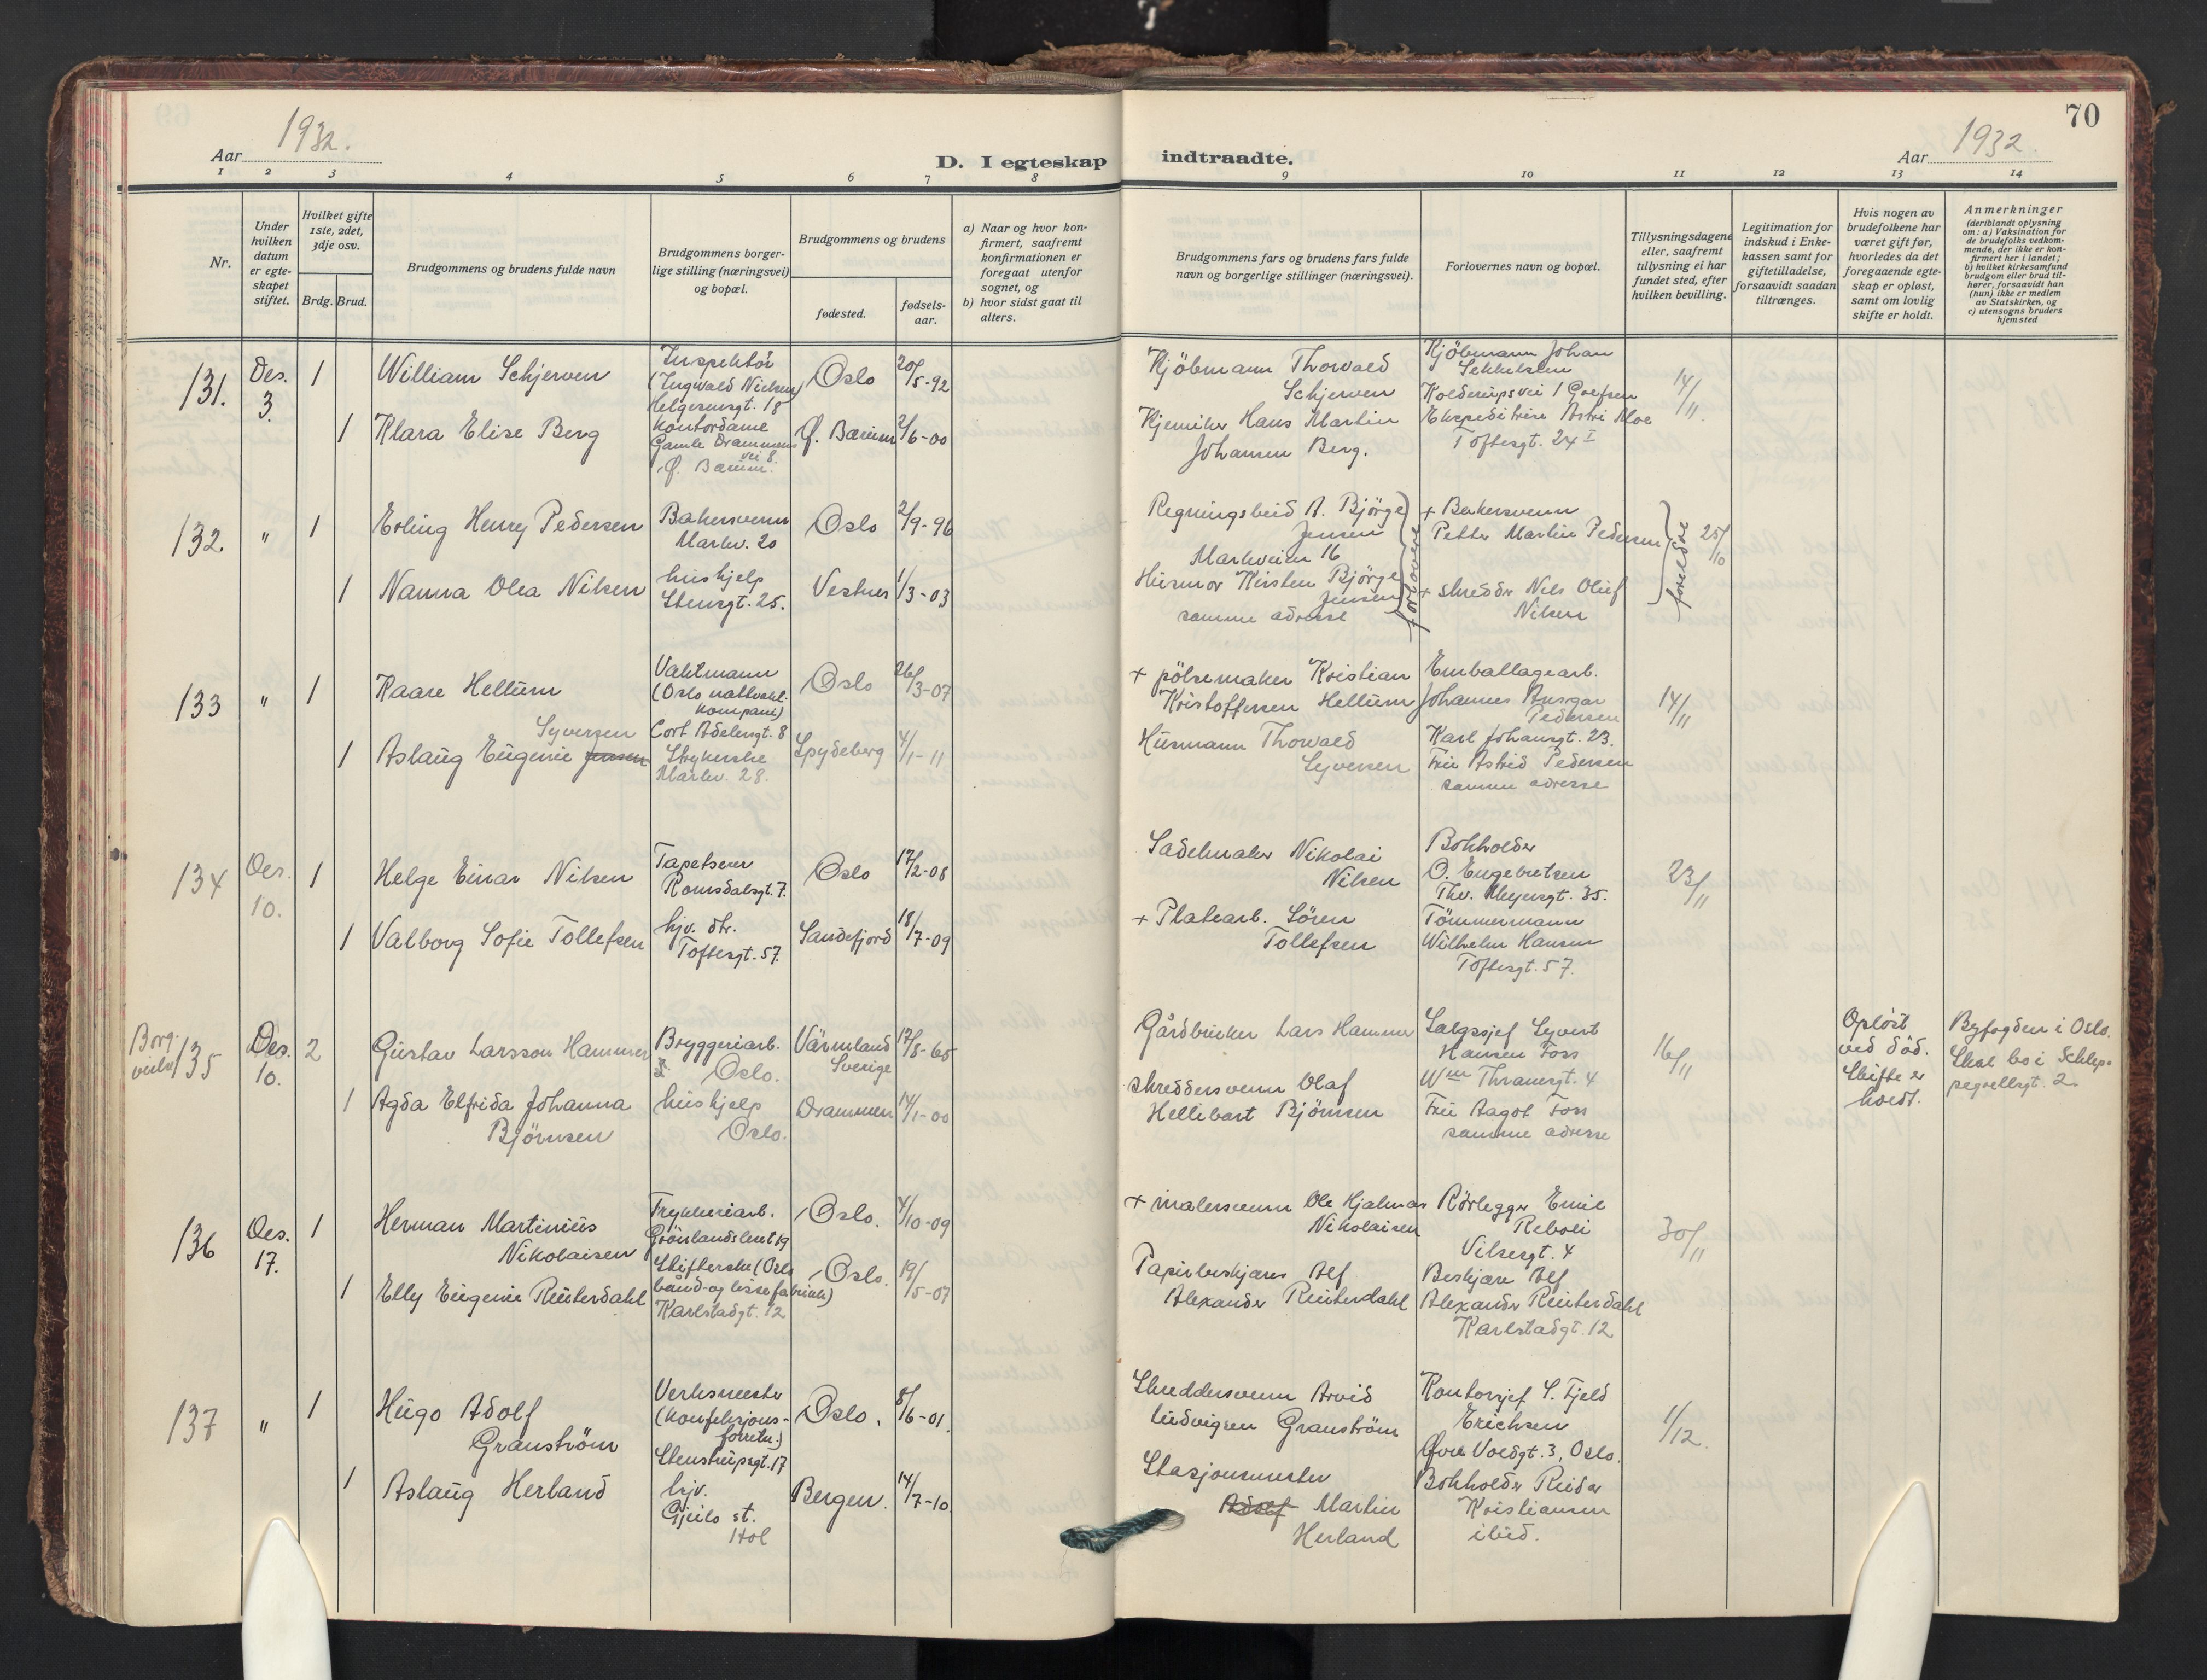 70
Aar 1932.
D. I egteskap indtraadte.
Aar 1932.
1 2 3 4 5 6 7 8 9 10 11 12 13 14
Nr.
Under hvilken datum er egteskapet stiftet.
Hvilket gifte 1ste, 2det, 3dje osv.
Brdg. Brud.
Brudgommens og brudens fulde navn
Brudgommens borgerlige stilling (næringsvei) og bopæl.
Brudgommens og brudens
fødested.
fødselsaar.
a) Naar og hvor konfirmert, saafremt konfirmationen er foregaat utenfor sognet, og
b) hvor sidst gaat til alters.
Brudgommens fars og brudens fars fulde navn og borgerlige stillinger (næringsvei).
Forlovernes navn og bopæl.
Tillysningsdagene eller, saafremt tillysning ei har fundet sted, efter hvilken bevilling.
Legitimation for indskud i Enkekassen samt for giftetilladelse, forsaavidt saadan tiltrænges.
Hvis nogen av brudefolkene har været gift før, hvorledes da det foregaaende egteskap er opløst, samt om lovlig skifte er holdt.
Anmerkninger
(deriblandt oplysning om: a) Vaksination for de brudefolks vedkommende, der ikke er konfirmert her i landet;
b) hvilket kirkesamfund brudgom eller brud tilhører, forsaavidt han (hun) ikke er medlem av Statskirken, og
c) utensogns bruders hjemsted
131. Des. 3. 1 William Schjerven
Inspektør
(Ingvald Nielsen)
Helgesensgt. 18
Oslo 20/5-92
Kjöbmann Thorvald
Schjerven
Kjöbmann Johan
Sekkelsten
Kolderupsvei 1 Grefsen
14/11.
1 Klara Elise Berg
Kontordame
Gamle Drammens
vei 8.
Ø. Bærum.
Ø. Bærum 2/6-00
Kjemiker Hans Martin
Johansen Berg.
Ekspeditrise Astri Moe
Toftesgt. 24 I
132. " 1 Erling Henry Pedersen
Bakersvenn
Markv. 20
Oslo 2/9-96
Regningsbeid A. Bjørge
Jensen
Markveien 16
+ Bakersvenn
Petter Martin Pedersen
25/10
1 Nanna Olea Nilsen
hushjelp
Stensgt. 25.
Vestnes 1/3-03
Husmor Kirsten Bjørge
Jensen
samme adresse
forlovere
+ skredder Nils Oluf
Nilsen
foreldre
133 " 1 Kaare Hellum
Vaktmann
(Oslo nattvakt-
kompani)
Cort Adelersgt. 8
Oslo 26/3-07
+ pölsemaker Kristian
Kristoffersen Hellum
Emballagearb.
Johannes Ansgar
Pedersen
Karl Johansgt. 23.
14/11
Syversen
1 Aslaug Eugenie Jensen
Strykerske
Markv. 28.
Spydeberg 4/1-11
Husmann Thorvald
Syversen
Fru Astrid Pedersen
samme adresse
134 Des. 10. 1 Helge Einar Nilsen
Tapetserer
Romsdalsgt. 7.
Oslo 17/2-08
Sadelmaker Nikolai
Nilsen
Bokholder
O. Engebretsen
Thv. Meyersgt. 35.
23/11
1 Valborg Sofie Tollefsen
hjv. dtr.
Toftesgt. 57.
Sandefjord 18/7-09
+ Platearb. Sören
Tollefsen
Tömmermann
Wilhelm Hansen
Toftesgt. 57.
Borg. vielse 135 Des. 10. 2 Gustav Larsson Hammer
Bryggeriarb.
Oslo.
Värmland
Sverige
17/8-65
Gårdbruker Lars Hammer
Salgssjef Syvert
Hansen Foss
Wm Thranesgt. 4
16/11
Opløst
ved död.
Skifte er
holdt.
Byfogden i Oslo.
Skal bo i Schlep-
pegrellsgt. 2.
1 Agda Elfrida Johanna
Björnsen
hushjelp
Oslo.
Drammen 14/1-00
Skreddersvenn Olaf
Hellibart Björnsen
Fru Aagot Foss
samme adresse
136 Des. 17. 1 Herman Martinius
Nikolaisen
Trykkeriarb.
Grönlandsleret 19
Oslo. 4/10-09
+ malersvenn Ole Hjalmar
Nikolaisen
Rörlegger Emil
Reboli
Vibesgt. 4
30/11
1 Elly Eugenie Reuterdahl
Skifterske (Oslo
bånd- og lissefabrikk)
Karlstadgt. 12
Oslo. 19/5-07
Papirbeskjærer Alf
Alexander Reuterdahl
Beskjærer Alf
Alexander Reuterdahl
Karlstadgt. 12
137 " 1 Hugo Adolf
Granström
Verksmester
(Konfeksjons-
forretn.)
Stenstrupsgt. 17
Oslo. 8/6-01.
Skreddersvenn Arvid
Ludvigsen Granström
Kontorsjef S. Fjeld
Erichsen
Øvre Voldgt. 3, Oslo.
1/12.
1 Aslaug Herland
hjv.
Gjeilo st.
Hol
Bergen. 14/7-10.
Stasjonsmester
Adolf Martin
Herland
Bokholder Reidar
Kristiansen
ibid.